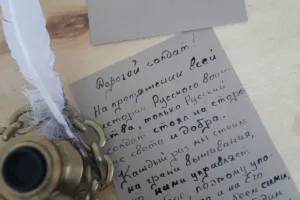 Дорогой солдат!
На протяжении всей
истории Русского воин-
ства, только Русский
солдат стоял на сторо-
не света и добра.
Каждый раз мы стояли
на грани выживания,
нами управляет
поэтому упо-
и на Его
всем сами,